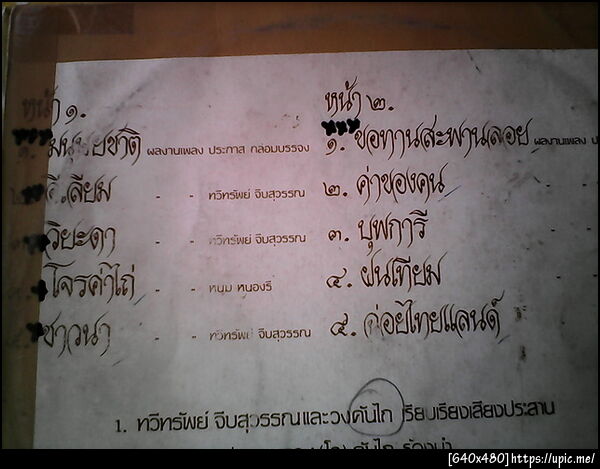 หน้า ๑.
๑. มนุษยชาติ ผลงานเพลง ประภาส กล่อมบรรจง
๒. อีเลียม - - ทวีทรัพย์ จีบสุวรรณ
๓. วิยะดา - - ทวีทรัพย์ จีบสุวรรณ
๔. โจรค่าไถ่ - - หนุ่ม หนองรี
๕. ชาวนา - - ทวีทรัพย์ จีบสุวรรณ
หน้า ๒.
๑. ขอทานสะพานลอย ผลงานเพลง
๒. ค่าของคน
๓. บุพการี
๔. ฝนเทียม
๕. ก๋อยไทยแลนด์
1. ทวีทรัพย์ จีบสุวรรณและวงคันไถ เรียบเรียงเสียงประสาน
คันไถ
[640x480]https://upic.me/